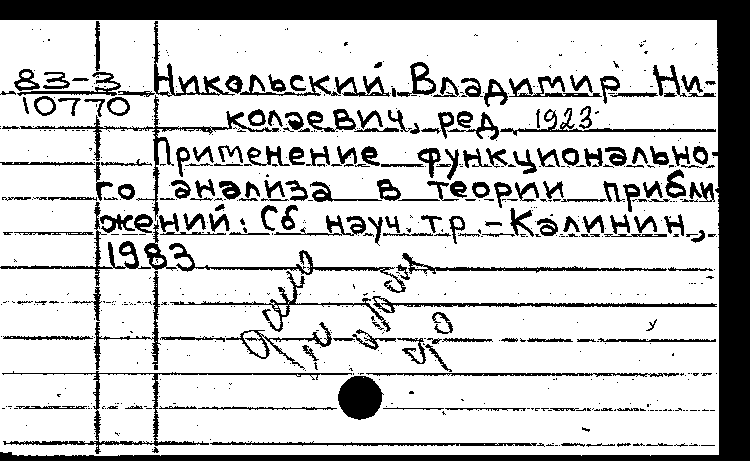 83-3 Никольский, Владимир Ни-
10770 колаевич, ред. 1923
Применение функционально-
го анализа в теории прибли-
жений: Сб. науч. тр. - Калинин,
1983